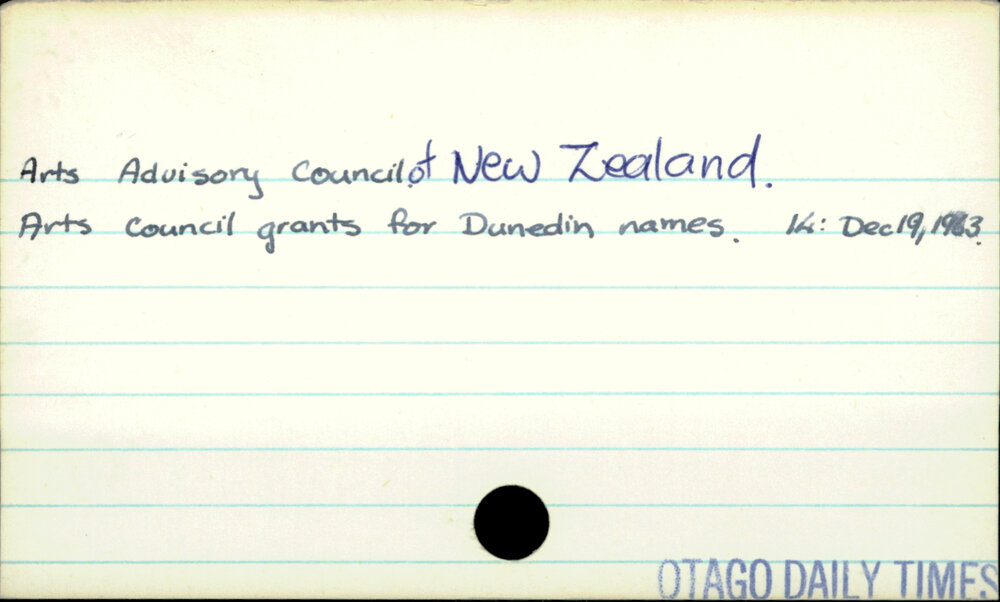 Arts Advisory Council of New Zealand.
Arts Council grants for Dunedin names. 14: Dec 19, 1963.
OTAGO DAILY TIMES